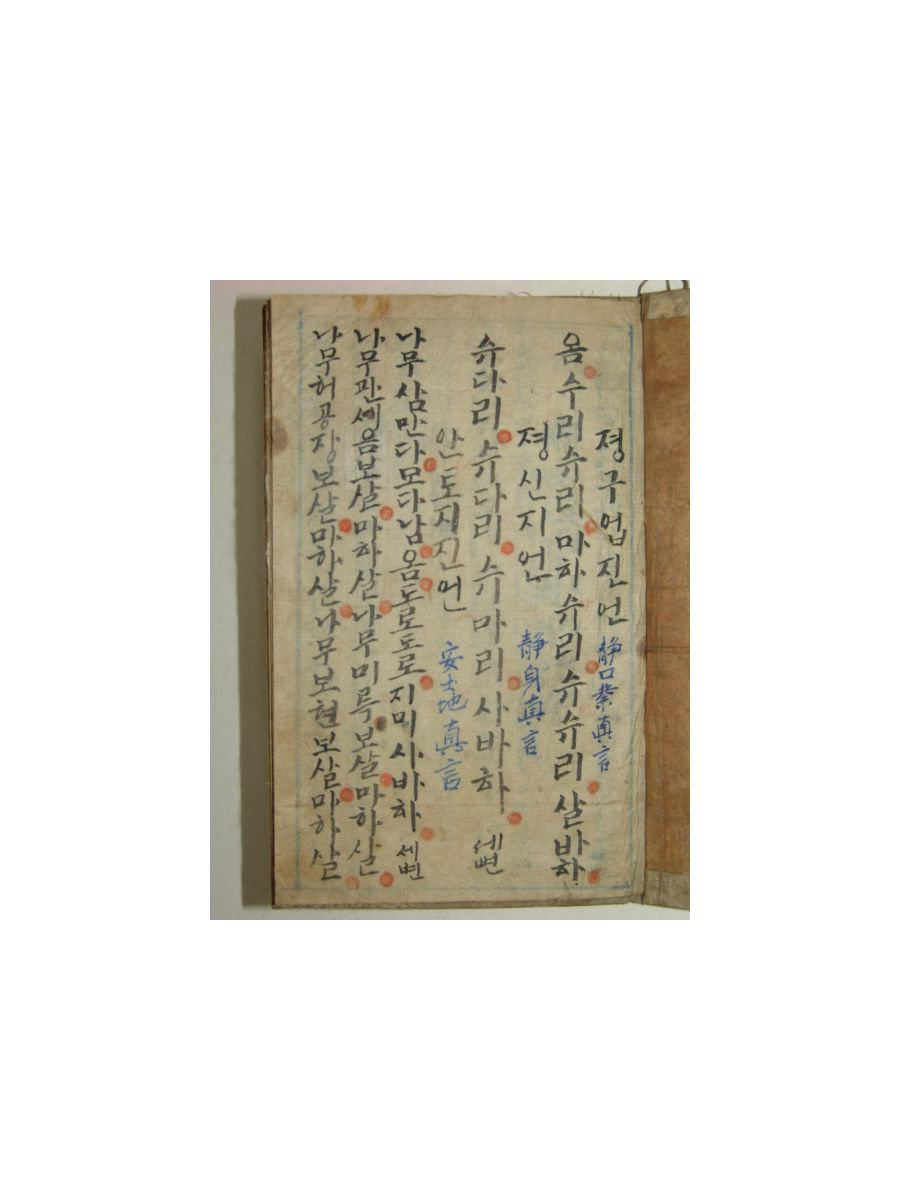 졍구업진언 静口業真言
옴 수리슈리 마하슈리 슈슈리 살바하
졍신지언 静身真言
슈다리 슈다리 슈마리 사바하 세번
안토지진언 安土地真言
나무 삼만다 모다남 옴 도로도로 지미 사바하 세번
나무관세음보살마하살 나무미륵보살마하살
나무허공장보살마하살 나무보현보살마하살